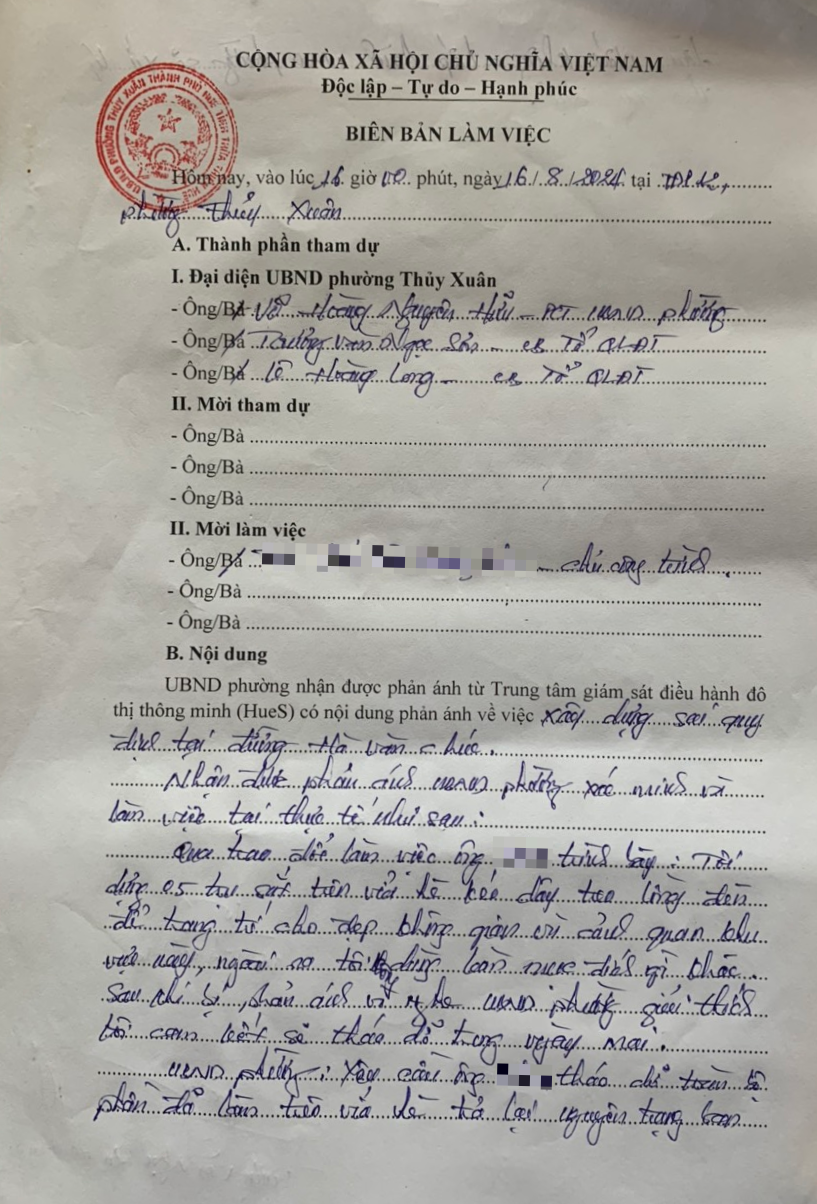 CỘNG HÒA XÃ HỘI CHỦ NGHĨA VIỆT NAM
Độc lập – Tự do – Hạnh phúc
BIÊN BẢN LÀM VIỆC
Hôm nay, vào lúc 16 giờ 00 phút, ngày 16/8/2024 tại TDP 12,
phường Thủy Xuân
A. Thành phần tham dự
I. Đại diện UBND phường Thủy Xuân
- Ông/Bà Võ Hoàng Nguyên Hữu - PCT UBND phường
- Ông/Bà Trương Văn Ngọc Sơn - CB Tổ QLĐT
- Ông/Bà Lê Hoàng Long - CB Tổ QLĐT
II. Mời tham dự
- Ông/Bà
- Ông/Bà
- Ông/Bà
II. Mời làm việc
- Ông/Bà - chủ công trình.
- Ông/Bà
- Ông/Bà
B. Nội dung
UBND phường nhận được phản ánh từ Trung tâm giám sát điều hành đô
thị thông minh (HueS) có nội dung phản ánh về việc xây dựng sai quy
định tại đường Hà Văn Chúc.
Nhận được phản ánh UBND phường xác minh và
làm việc tại thực tế như sau:
Qua trao đổi làm việc ông trình bày: Tôi
dựng 05 trụ sắt trên vỉa hè kéo dây treo lồng đèn
để trang trí cho đẹp không gian và cảnh quan khu
vực này, ngoài ra tôi không làm mục đích gì khác.
Sau khi bị phản ánh và nghe UBND phường giải thích
tôi cam kết sẽ tháo dỡ trong ngày mai.
UBND phường: Yêu cầu ông tháo dỡ toàn bộ
phần đã làm trên vỉa hè trả lại nguyên trạng ban